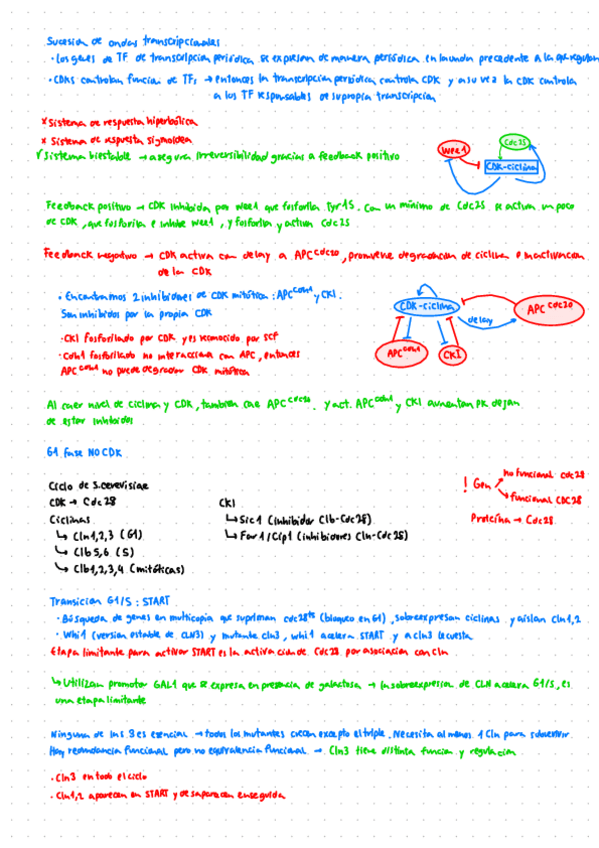 Sucesión de ondas transcripcionales
· Los genes de TF de transcripción periódica se expresan de manera periódica en la unión precedente a la que regulan
· CDKs controlan función de TFs → entonces la transcripción periódica controla CDK y a su vez la CDK controla
a los TF responsables de su propia transcripción
x Sistema de respuesta hiperbólica
x Sistema de respuesta sigmoidea
√ Sistema biestable → asegura irreversibilidad gracias a feedback positivo
Wee1
Cdc25
CDK-ciclina
Feedback positivo → CDK inhibida por wee1 que fosforila Tyr15. Con un mínimo de Cdc25 se activa un poco
de CDK, que fosforila e inhibe wee1, y fosforila y activa Cdc25
Feedback negativo → CDK activa con delay a APC cdc20, promueve degradación de ciclina e inactivación
de la CDK
· Encontramos 2 inhibidores de CDK mitótica: APC cdh1 y CKI.
Son inhibidos por la propia CDK
· CKI fosforilado por CDK y es reconocido por SCF
· Cdh1 fosforilado no interacciona con APC, entonces
APC cdh1 no puede degradar CDK mitótica
CDK-ciclina
APC cdc20
delay
APC cdh1
CKI
Al caer nivel de ciclina y CDK, también cae APC cdc20. y act. APC cdh1 y CKI aumentan pk dejan
de estar inhibidos
G1 fase NO CDK
Ciclo de S.cerevisiae
CDK → Cdc28
Ciclinas
↳ Cln1,2,3 (G1)
↳ Clb5,6 (S)
↳ Clb1,2,3,4 (mitóticas)
CKI
↳ Sic1 (inhibidor Clb-Cdc28)
↳ Far1/Cip1 (inhibidores Cln-Cdc28)
! Gen
no funcional cdc28
funcional CDC28
Proteína → Cdc28
Transición G1/S: START
· Búsqueda de genes en multicopia que supriman cdc28ts (bloqueo en G1), sobreexpresan ciclinas y aíslan Cln1,2
· Whi1 (versión estable de CLN3) y mutante cln3, whi1 acelera START y a cln3 le cuesta
Etapa limitante para activar START es la activación de Cdc28 por asociación con cln
↳ Utilizan promotor GAL1 que se expresa en presencia de galactosa → la sobreexpresión de CLN acelera G1/S, es
una etapa limitante
Ninguna de las 3 es esencial → todos los mutantes crecen excepto el triple. Necesita al menos 1 Cln para sobrevivir
Hay redundancia funcional pero no equivalencia funcional → Cln3 tiene distinta función y regulación
· Cln3 en todo el ciclo
· Cln1,2 aparecen en START y desaparecen enseguida